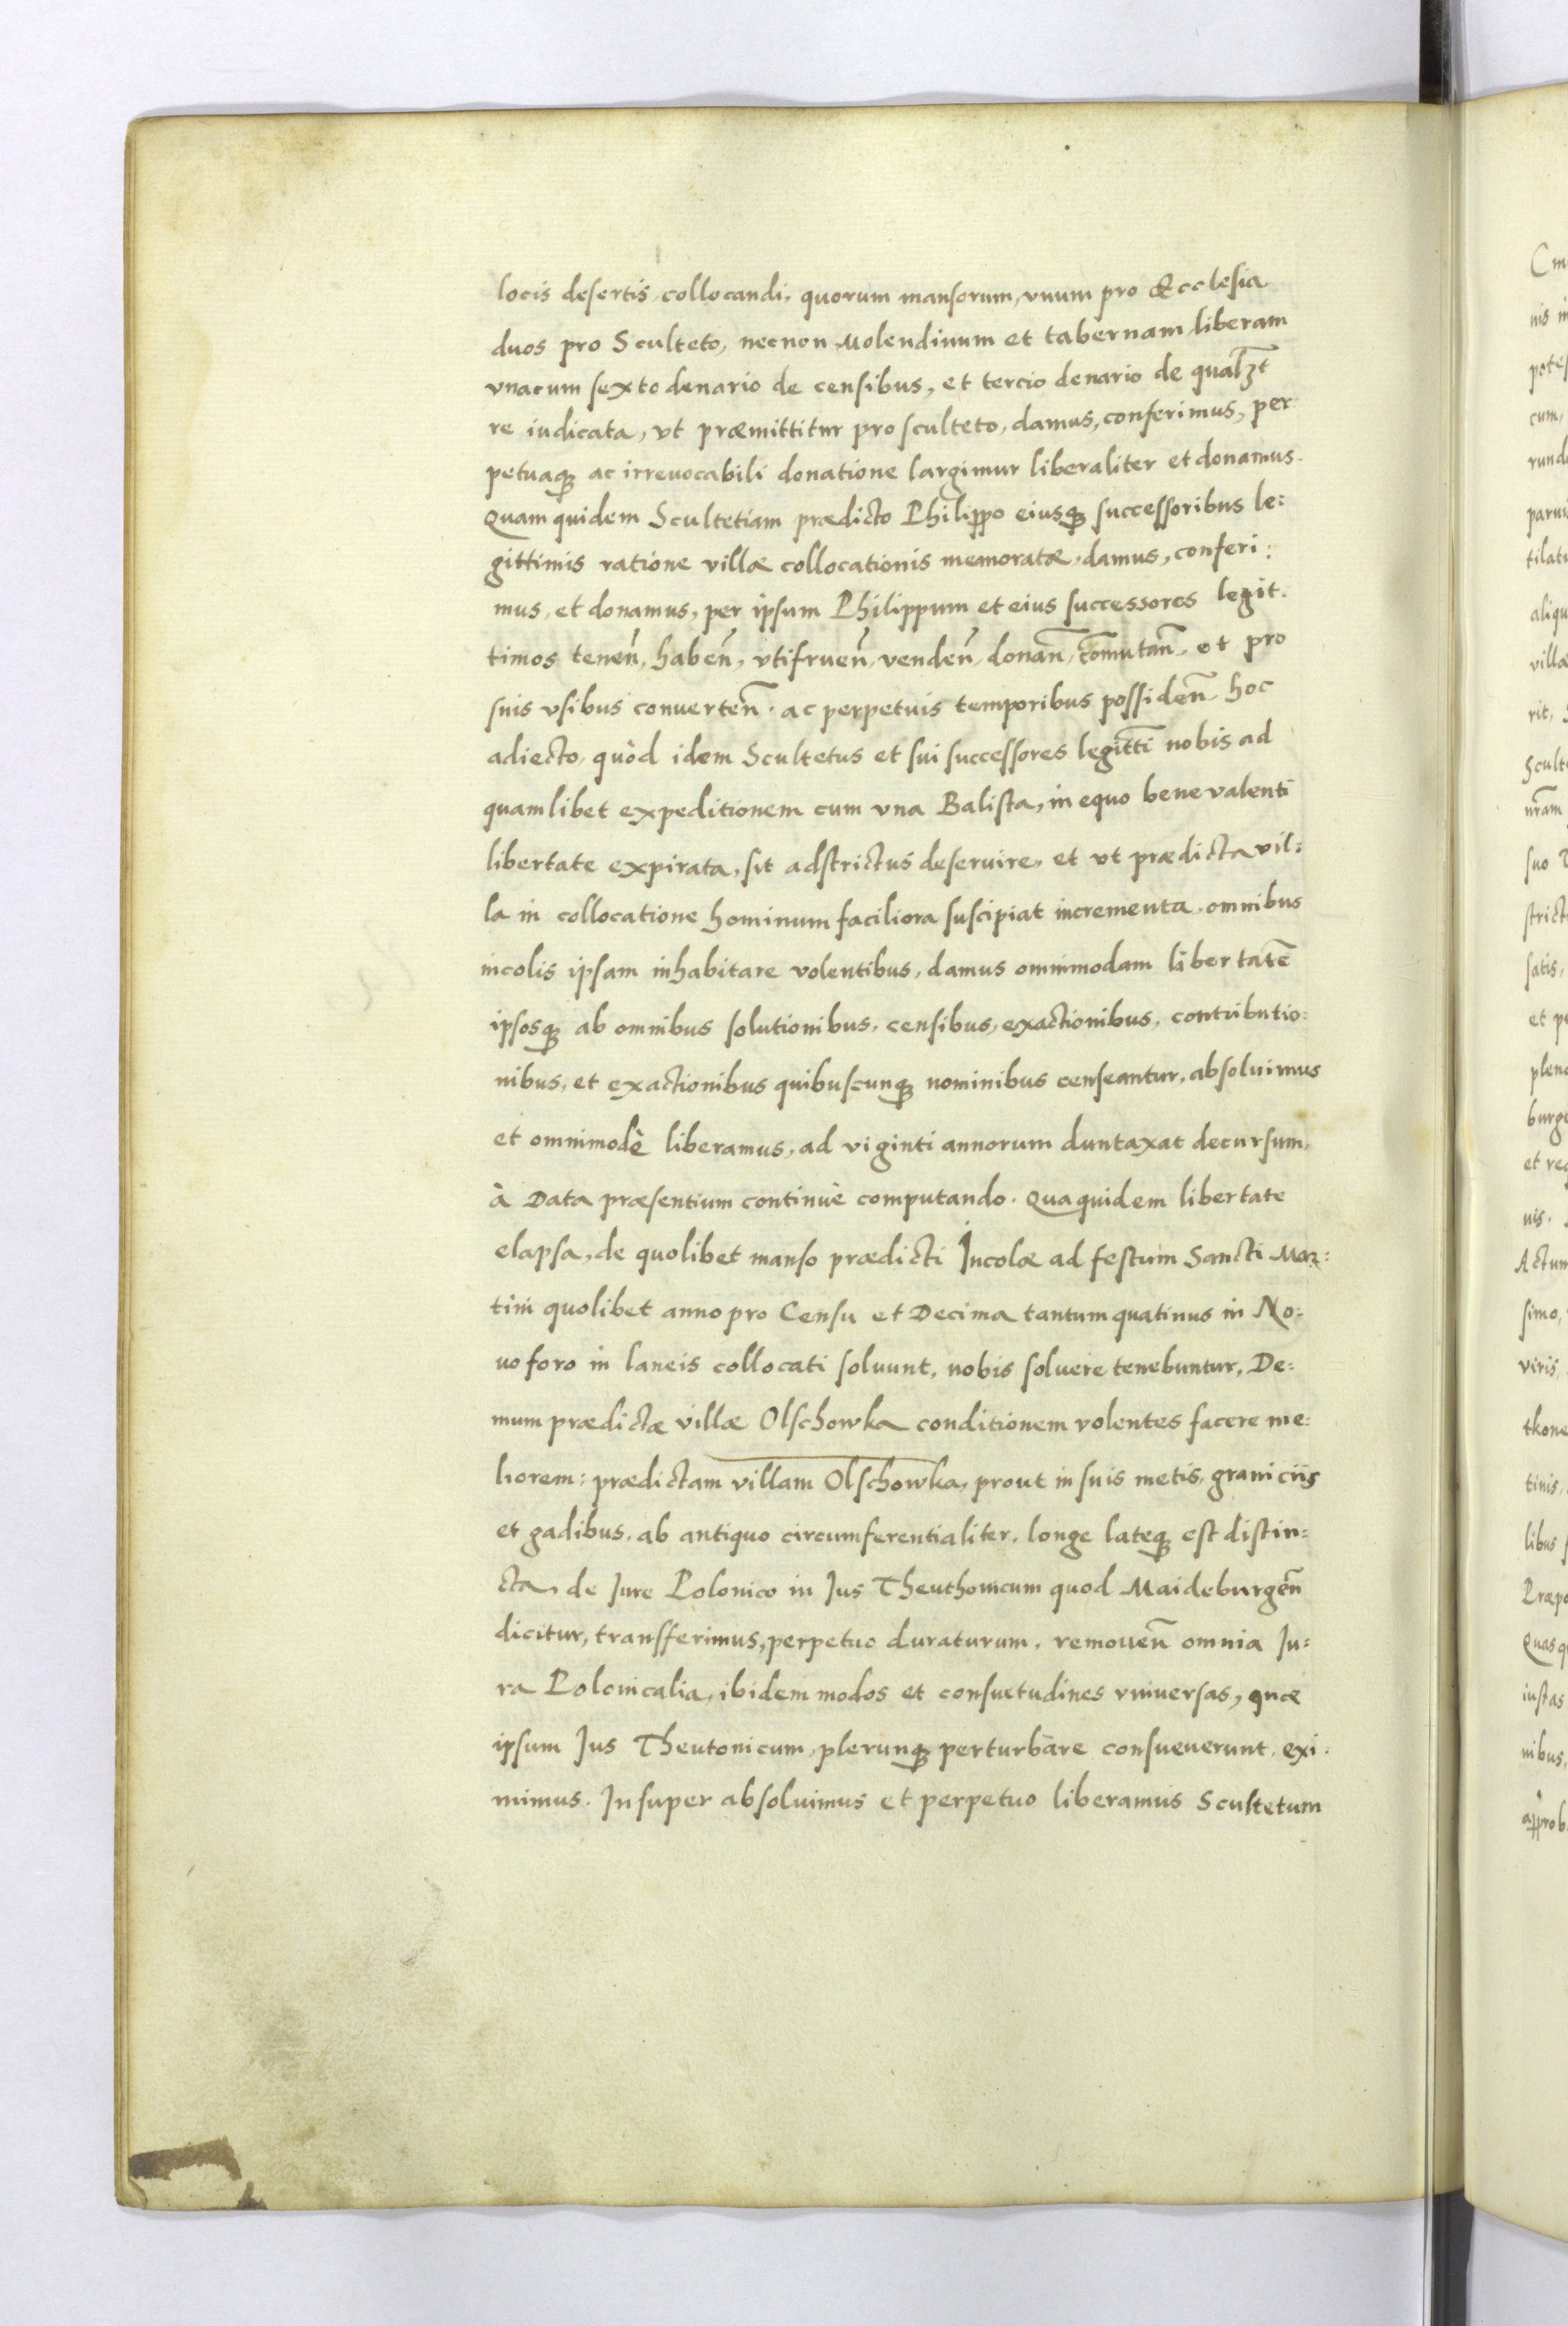 locis desertis, collocandi, quorum mansorum, vnum pro Ecclesia
duos pro Sculteto, necnon Molendinum et tabernam liberam
vnacum sexto denario de censibus, et tercio denario de qualꝫt
re iudicata, vt præmittitur pro sculteto, damus, conferimus, per
petuaqꝫ ac irreuocabili donatione largimur liberaliter et donamus.
Quam quidem Scultetiam prædicto Philippo eiusqꝫ successoribus le:
gittimis ratione villæ collocationis memoratæ, damus, conferi:
mus, et donamus, per ipsum Philippum et eius successores legit:
timos teneñ, habeñ, vtifrueñ, vendeñ, donañ, com̄utañ, et pro
suis vsibus conuerteñ. ac perpetuis temporibus possideñ, hoc
adiecto, quòd idem Scultetus et sui successores legitti̅ nobis ad
quamlibet expeditionem cum vna Balista, in equo bene valenti
libertate expirata, sit adstrictus deseruire, et vt prædicta vil:
la in collocatione hominum faciliora suscipiat incrementa, omnibus
incolis ipsam inhabitare volentibus, damus omnimodam libertatē
ipsosqꝫ ab omnibus solutionibus, censibus, exactionibus, contributio:
nibus, et exactionibus quibuscunqꝫ nominibus censeantur, absoluimus
et omnimodè liberamus, ad viginti annorum duntaxat decursum,
à Data præsentium continuè computando. Qua quidem libertate
elapsa, de quolibet manso prædicti Incolæ ad festum Sancti Mar:
tini quolibet anno pro Censu et Decima tantum quatinus in No:
uo foro in laneis collocati soluunt, nobis soluere tenebuntur, De:
mum prædictæ villæ Olschowka conditionem volentes facere me:
liorem: prædictam villam Olschowka, prout in suis metis, graniciis
et gadibus, ab antiquo circumferentialiter, longe lateqꝫ est distin:
cta, de Jure Polonico in Jus Theuthonicum quod Maideburgeñ
dicitur, transfferimus, perpetuo duraturum, remoueñ omnia Ju:
ra Polonicalia, ibidem modos et consuetudines vniuersas, quæ
ipsum Jus Theutonicum, plerunqꝫ perturbare consueuerunt, exi:
mimus. Insuper absoluimus et perpetuo liberamus Scultetum